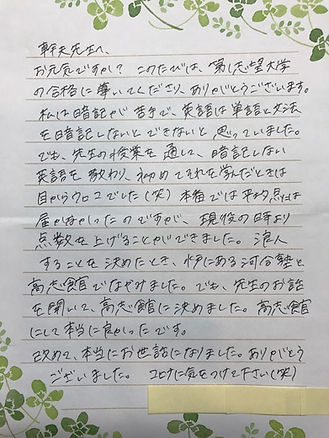 幹夫先生へ
お元気ですか? このたびは、第1志望大学
の合格に導いてくださり、ありがとうございます。
私は暗記が苦手で、英語は単語と文法
を暗記しないとできないと思っていました。
でも、先生の授業を通して、暗記しない
英語を教わり、初めてそれを学んだときは
目からウロコでした(笑) 本番では平均点には
届かなかったのですが、現役の時より
点数を上げることができました。浪人
することを決めたとき、水戸にある河合塾と
高志館でなやみました。でも、先生のお話
を聞いて、高志館に決めました。高志館
にして本当に良かったです。
改めて、本当にお世話になりました。ありがとう
ございました。 コロナに気をつけて下さい(笑)